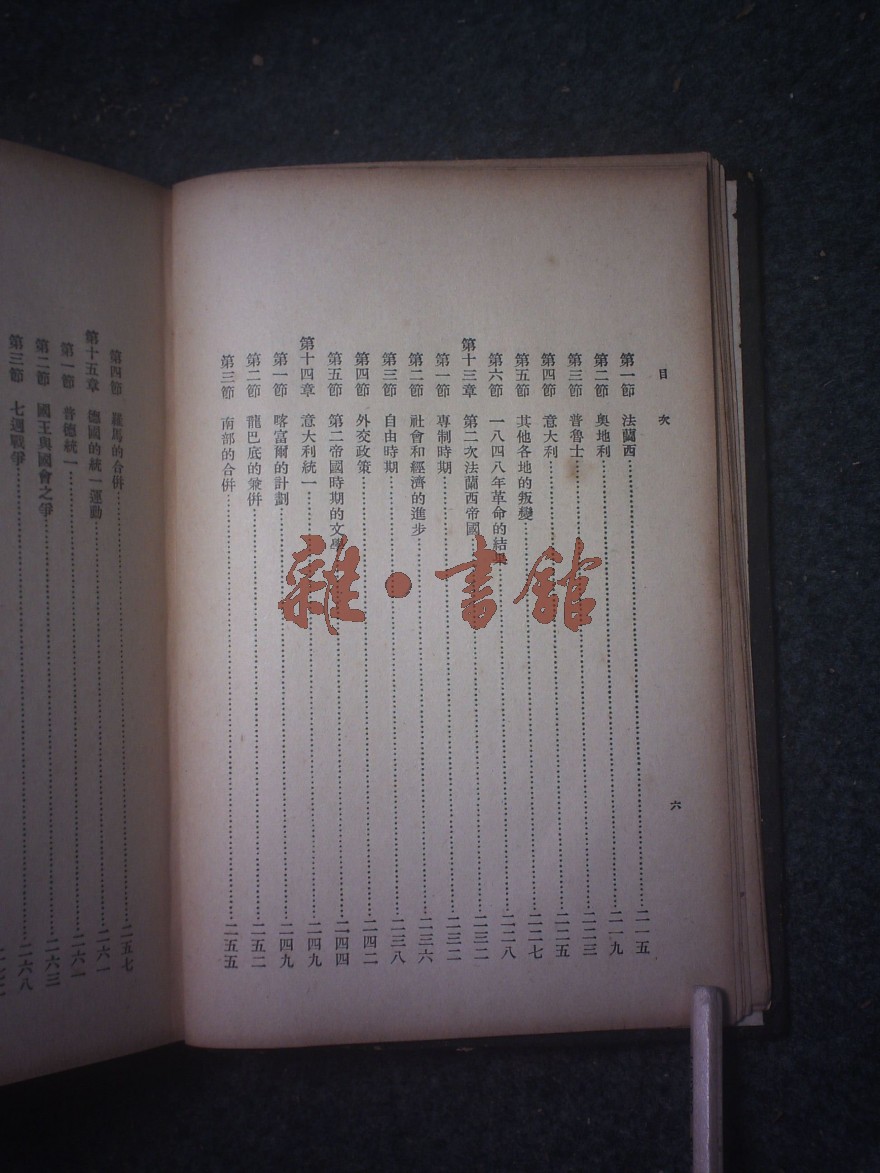 目次
第一節 法蘭西 二一五
第二節 奧地利 二一九
第三節 普魯士 二二三
第四節 意大利 二二五
第五節 其他各地的叛變 二二七
第六節 一八四八年革命的結果 二二八
第十三章 第二次法蘭西帝國 二三二
第一節 專制時期 二三二
第二節 社會和經濟的進步 二三六
第三節 自由時期 二三八
第四節 外交政策 二四二
第五節 第二帝國時期的文學 二四四
第十四章 意大利統一 二四九
第一節 喀富爾的計劃 二四九
第二節 龍巴底的兼併 二五二
第三節 南部的合併 二五五
六
第四節 羅馬的合併 二五七
第十五章 德國的統一運動 二六一
第一節 普德統一 二六一
第二節 國王與國會之爭 二六三
第三節 七週戰爭 二六八
雜·書館